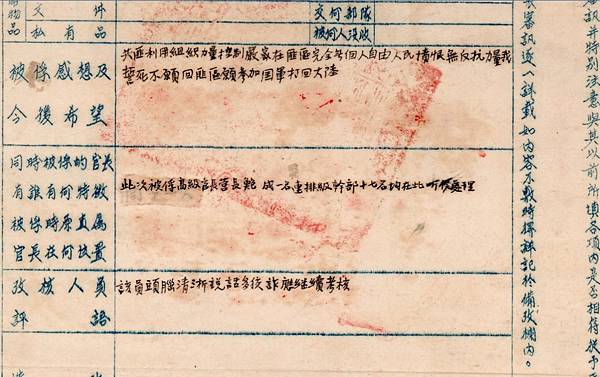 文件
私有品
交何部隊
被何人沒收
被俘感想及
今後希望
共匪利用組織力量控制嚴密在匪區完全無個人自由人民憤恨無反抗力量我
誓死不願回匪區願參加国軍打回大陸
同時被俘的官長
有誰有何特徵
被俘時原直属
官長在何位置
此次被俘高級官長營長鮑 成一名連排級幹部十七名均在此
處理
攷核人員
評語
該員頭腦清淅説話多後詐應継續考核
審訊逐一詳載如内容不敷時得詳記於備攷欄内。
者訊並特別注意與其以前所填各項内是否相符